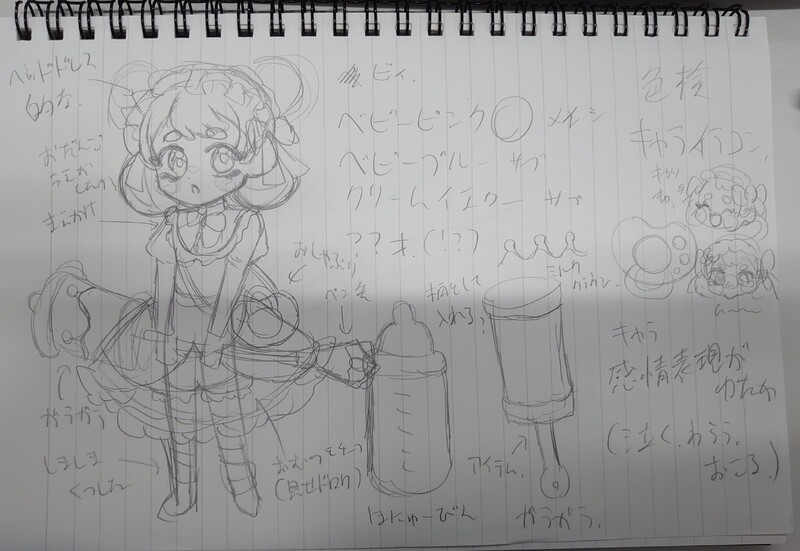 ヘッドドレス
的な
おだんご
まえかけ
がらがら
しましま
くつした
おむつモチーフ
(見せドロワ)
おしゃぶり
ベビーピンク メイン
ベビーブルー サブ
クリームイエロー サブ
??才.(!?)
ミルク
クラウン
柄として
入れる?
ほにゅーびん
アイテム
がらがら.
キャライラコン.
キャラ
感情表現が
ゆたか
(泣く.わらう.
おこる.)